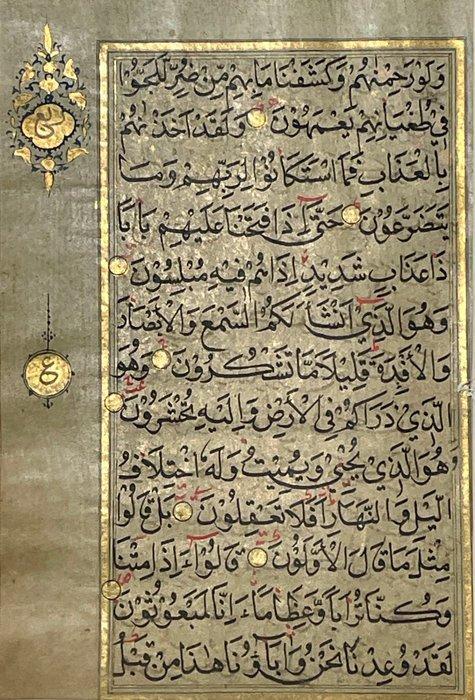 وَلَوْ رَحِمْنٰهُمْ وَكَشَفْنَا مَا بِهِمْ مِنْ ضُرٍّ لَلَجُّوْا
فِيْ طُغْيَانِهِمْ يَعْمَهُوْنَ وَلَقَدْ اَخَذْنٰهُمْ
بِالْعَذَابِ فَمَا اسْتَكَانُوْا لِرَبِّهِمْ وَمَا
يَتَضَرَّعُوْنَ حَتّٰى اِذَا فَتَحْنَا عَلَيْهِمْ بَابًا
ذَا عَذَابٍ شَدِيْدٍ اِذَا هُمْ فِيْهِ مُبْلِسُوْنَ
وَهُوَ الَّذِيْ اَنْشَاَ لَكُمُ السَّمْعَ وَالْاَبْصَارَ
وَالْاَفْئِدَةَ قَلِيْلًا مَا تَشْكُرُوْنَ وَهُوَ
الَّذِيْ ذَرَاَكُمْ فِي الْاَرْضِ وَاِلَيْهِ تُحْشَرُوْنَ
وَهُوَ الَّذِيْ يُحْيِيْ وَيُمِيْتُ وَلَهُ اخْتِلَافُ
الَّيْلِ وَالنَّهَارِ اَفَلَا تَعْقِلُوْنَ بَلْ قَالُوْا
مِثْلَ مَا قَالَ الْاَوَّلُوْنَ قَالُوْا ءَاِذَا مِتْنَا
وَكُنَّا تُرَابًا وَعِظَامًا ءَاِنَّا لَمَبْعُوْثُوْنَ
لَقَدْ وُعِدْنَا نَحْنُ وَاٰبَاؤُنَا هٰذَا مِنْ قَبْلُ
ع